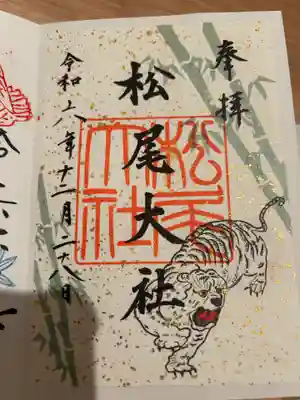 奉拝
松尾大社
松尾大社
令和六年十二月二十八日